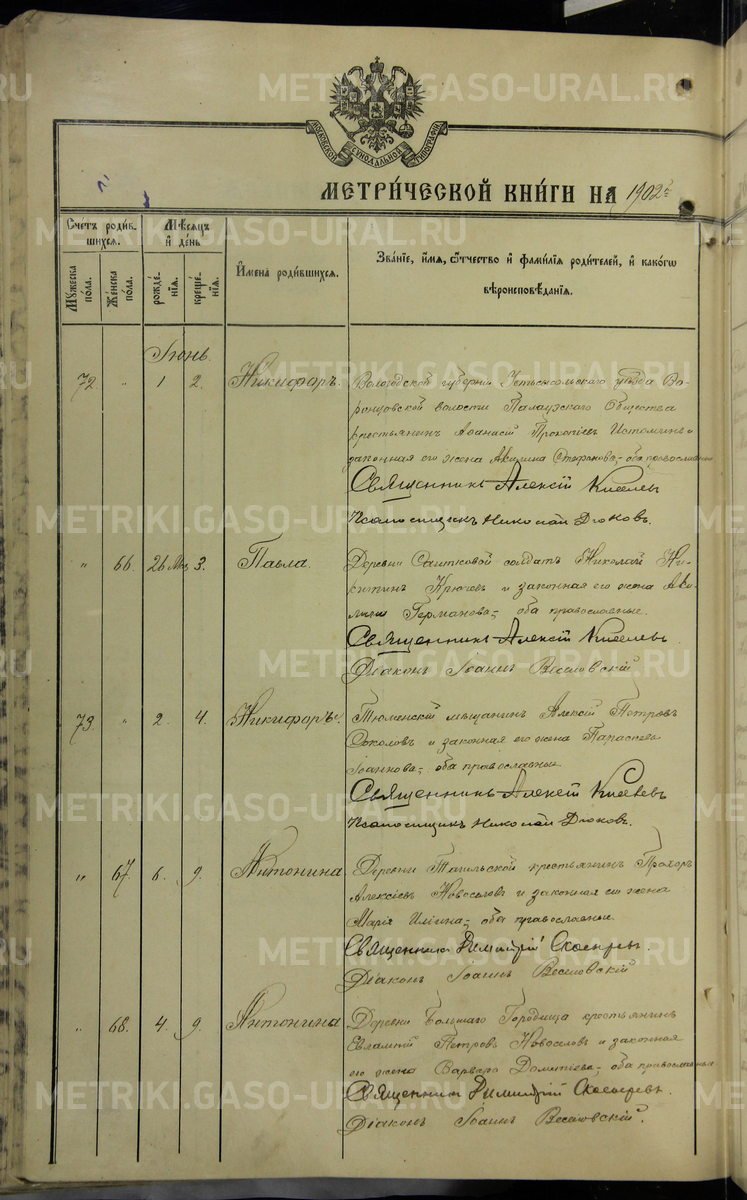 METRIKI.GASO-URAL.RU
МОСКОВСКОЙ СѴНОДАЛЬНОЙ ТИПОГРАФІИ
МЕТРИ́ЧЕСКОЙ КНИ́ГИ НА 1902 г.
Сче́тъ роди́вшихся.
Мѣ́сяцъ и҆ де́нь
И҆мена̀ роди́вшихся.
Зва́нїе, и҆́мѧ, ѻ҆́тчество и҆ фамилїѧ роди́телей, и҆ како́гѡ
вѣроисповѣ́данїѧ.
Мꙋ́жеска по́ла.
Же́нска по́ла.
рожде́нїѧ.
креще́нїѧ.
Іюнь.
72 " 1 2. Никифоръ.
Вологодской губерніи Устьсысольскаго уѣзда Во-
ронцовской волости Палаузскаго Общества
крестьянинъ Аѳанасій Прокопіевъ Истоминъ и
законная его жена Акилина Стефанова, оба православные
Священникъ Алексій Киселевъ
Псаломщикъ Николай Дюковъ.
" 66. 26 Мая 3. Павла.
Деревни солдатъ Николай Ни-
китинъ и законная его жена Аки-
лина Германова, оба православные.
Священникъ Алексій Киселевъ
Діаконъ Іоаннъ Веселовскій
73 " 2. 4. Никифоръ.
Тюменскій мѣщанинъ Алексій Петровъ
Соколовъ и законная его жена Параскева
Іоаннова, оба православные
Священникъ Алексій Киселевъ
Псаломщикъ Николай Дюковъ.
" 67. 6. 9. Антонина.
Деревни Тагильской крестьянинъ Прохоръ
Алексіевъ Новоселовъ и законная его жена
Марія Иліина, оба православные
Священникъ Димитрій
Діаконъ Іоаннъ Веселовскій
" 68. 4. 9. Антонина
Деревни Большаго Городища крестьянинъ
Евлампій Петровъ Новоселовъ и законная
его жена Варвара оба православные
Священникъ Димитрій
Діаконъ Іоаннъ Веселовскій.